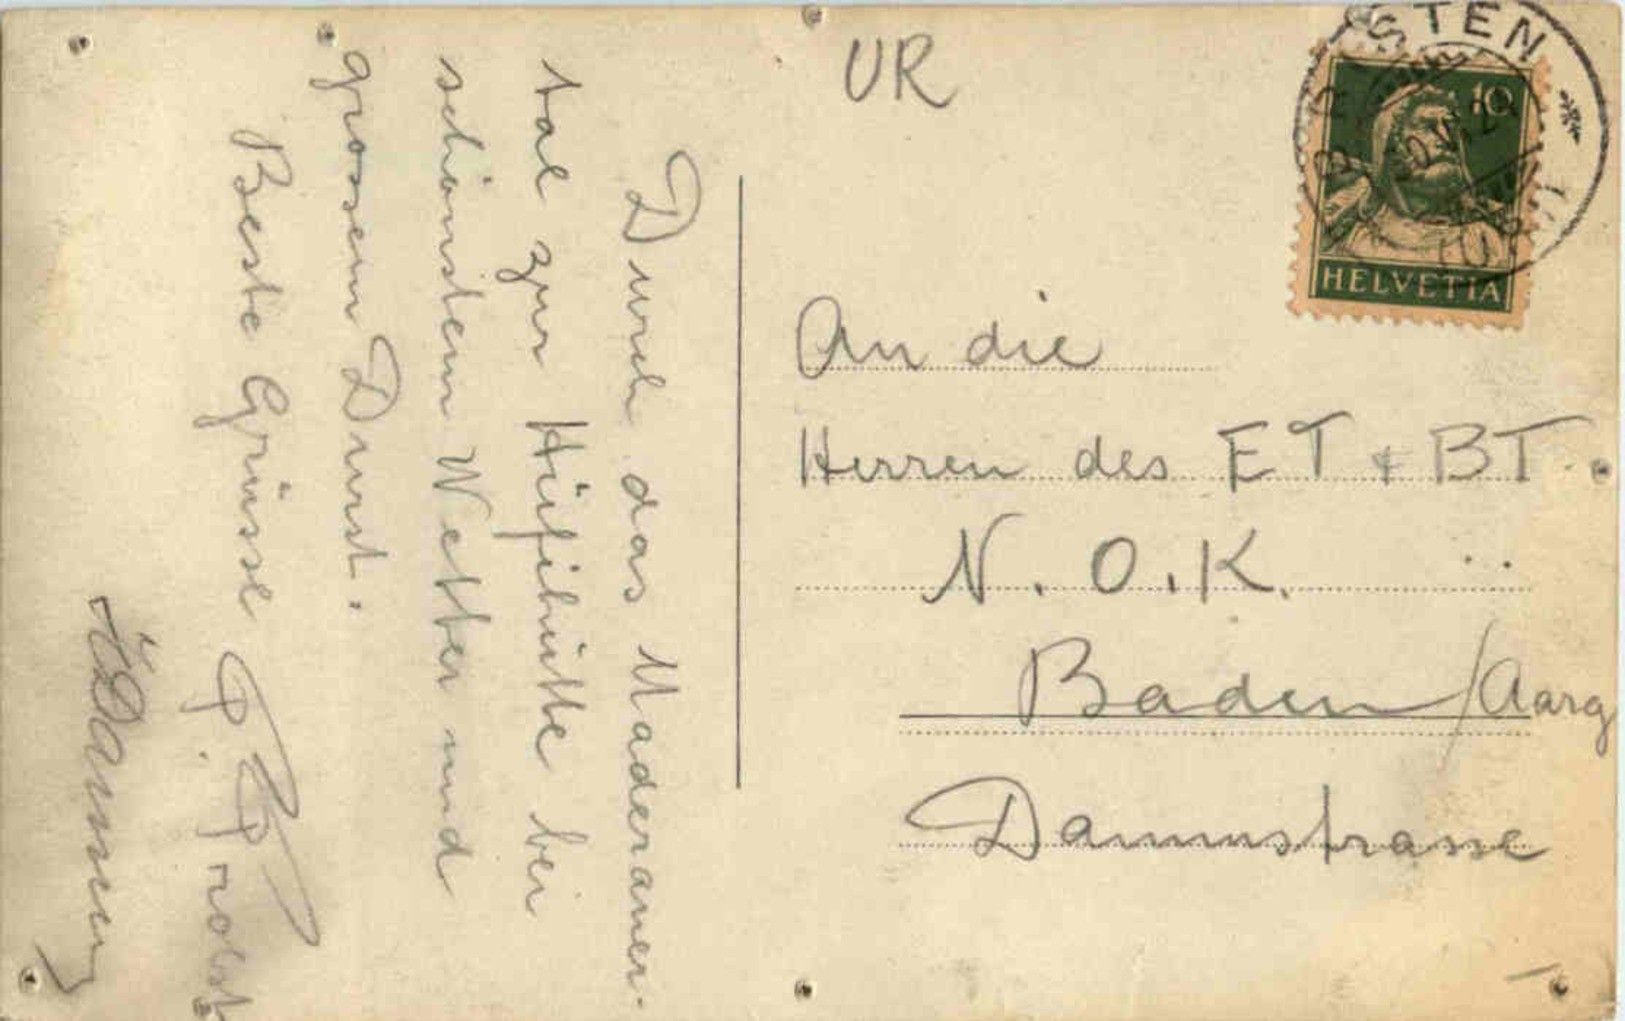 UR
BRISTEN
(URI)
10
HELVETIA
Durch das Maderaner-
tal zur Hüfihütte bei
schönstem Wetter und
grossem Durst.
Beste Grüsse
An die
Herren des ET & BT.
N. O. K.
Baden/Aarg
Dammstrasse